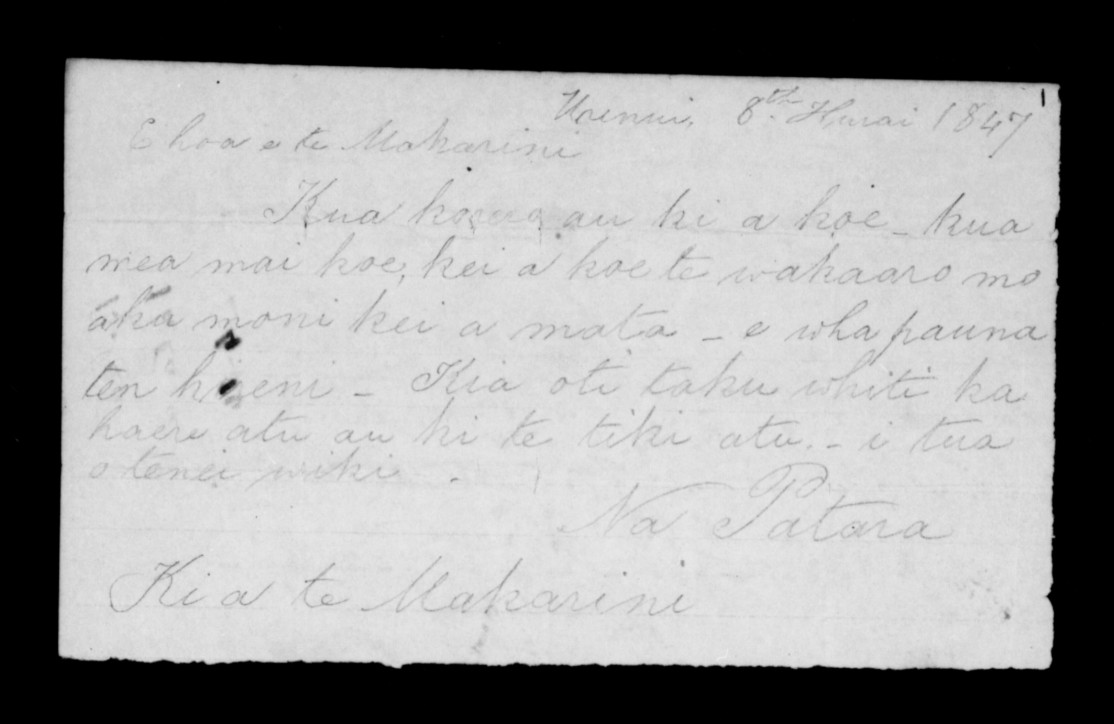 Urenui, 8th Hurai 1847
E hoa e te Makarini
Kua korero au ki a koe - kua
mea mai koe, kei a koe te wakaaro mo
aku moni kei a mata - e wha pauna
ten hereni - Kia oti taku whiti ka
haere atu au ki te tiki atu. - i tua
o tenei wiki -
Na Patara
Ki a te Makarini